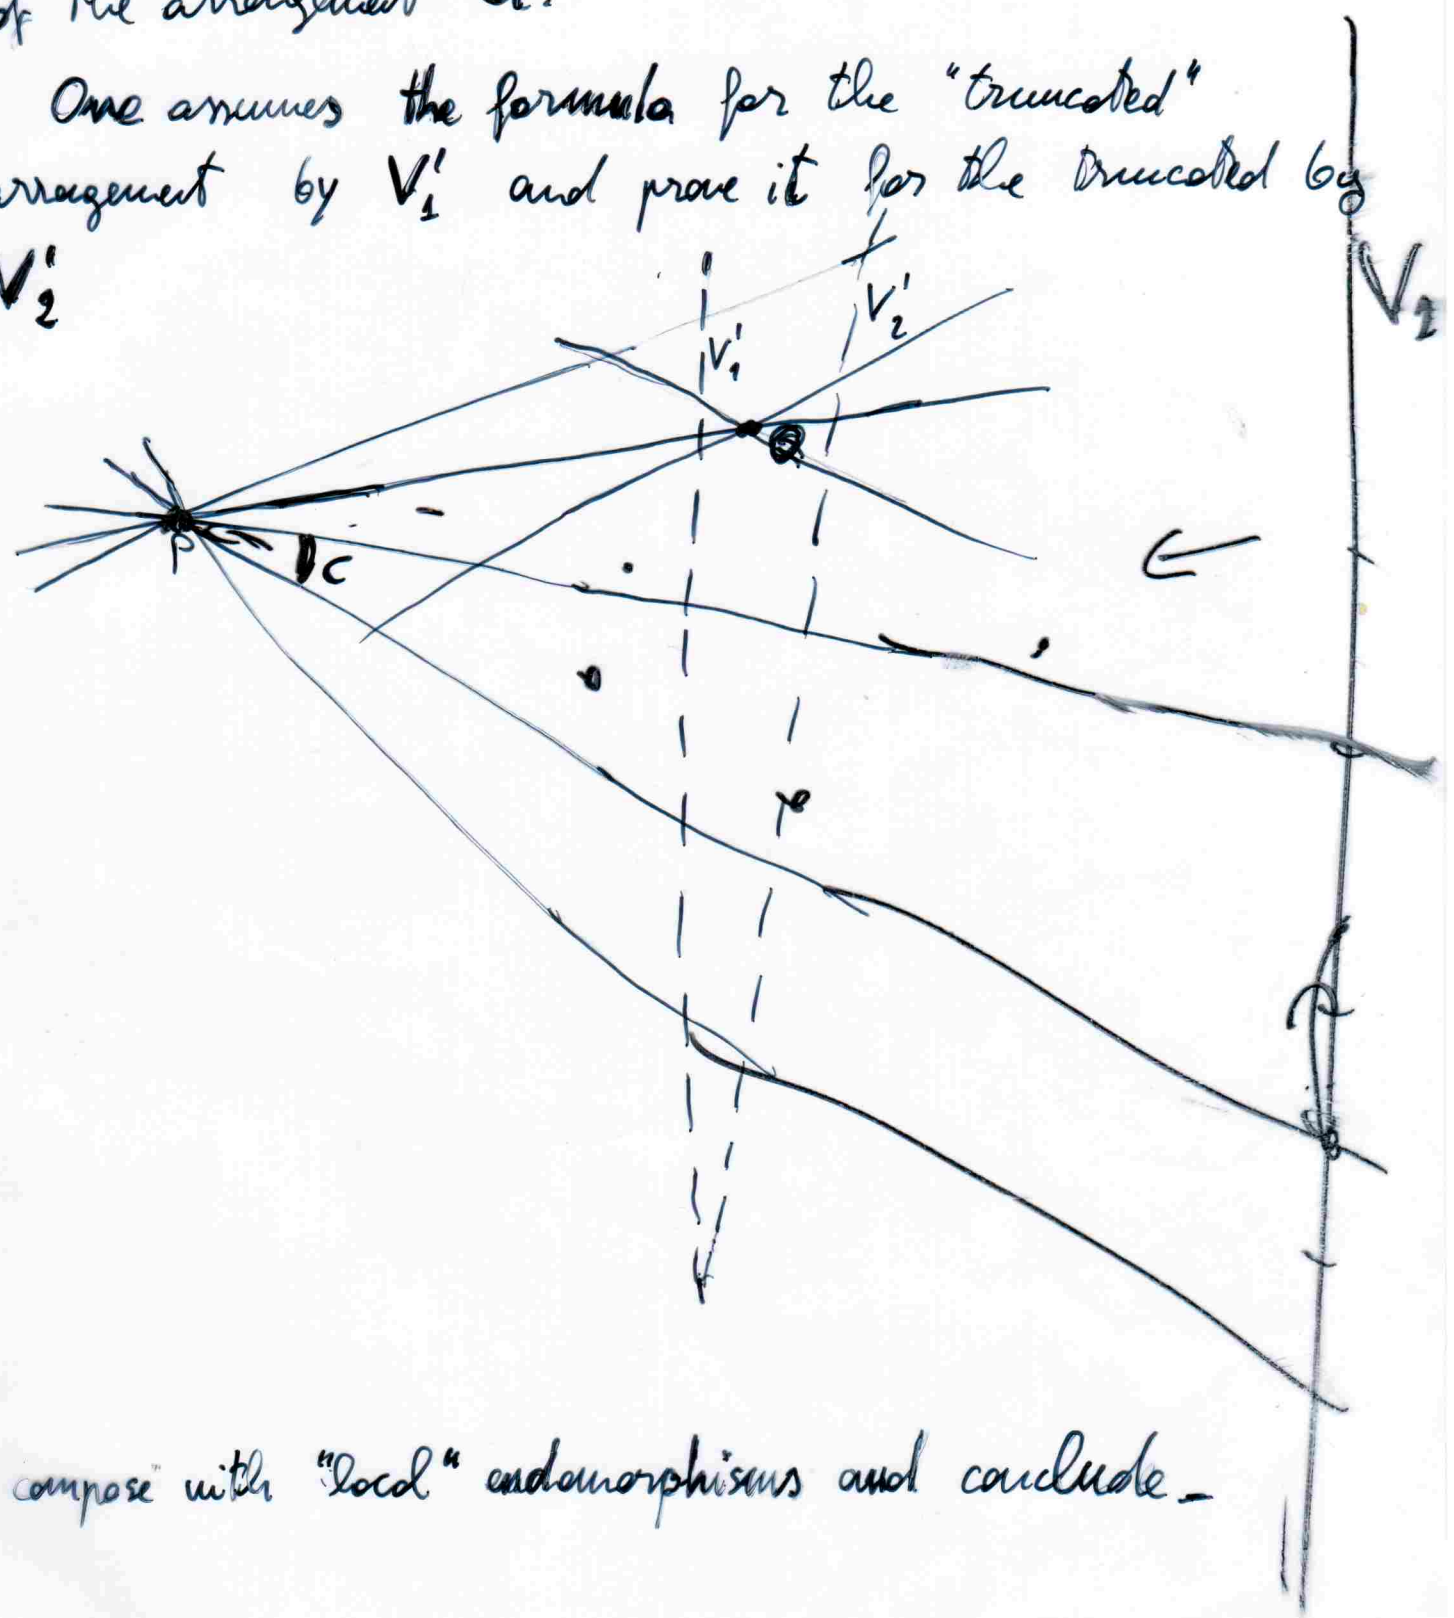 of the arrangement
One assumes the formula for the "truncated"
rragement by V'₁ and prove it for the truncated by
V'₂
V₂
V'₂
V'₁
Q
P
C
compose with "local" endomorphisms and conclude_